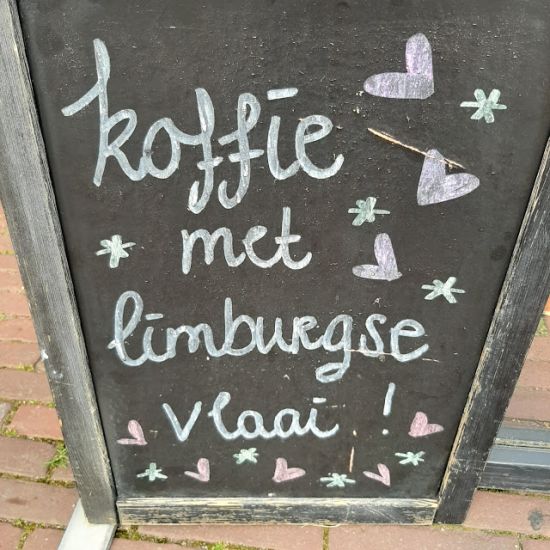 koffie
met
limburgse
vlaai !